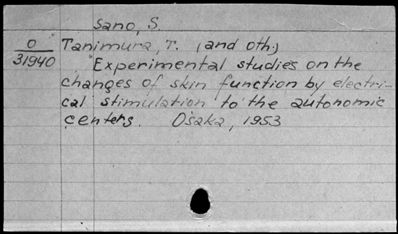 Sano, S.
O Tanimura, T. (and oth.)
31940 "Experimental studies on the
changes of skin function by electri-
cal stimulation to the autonomic
centers. Osaka, 1953